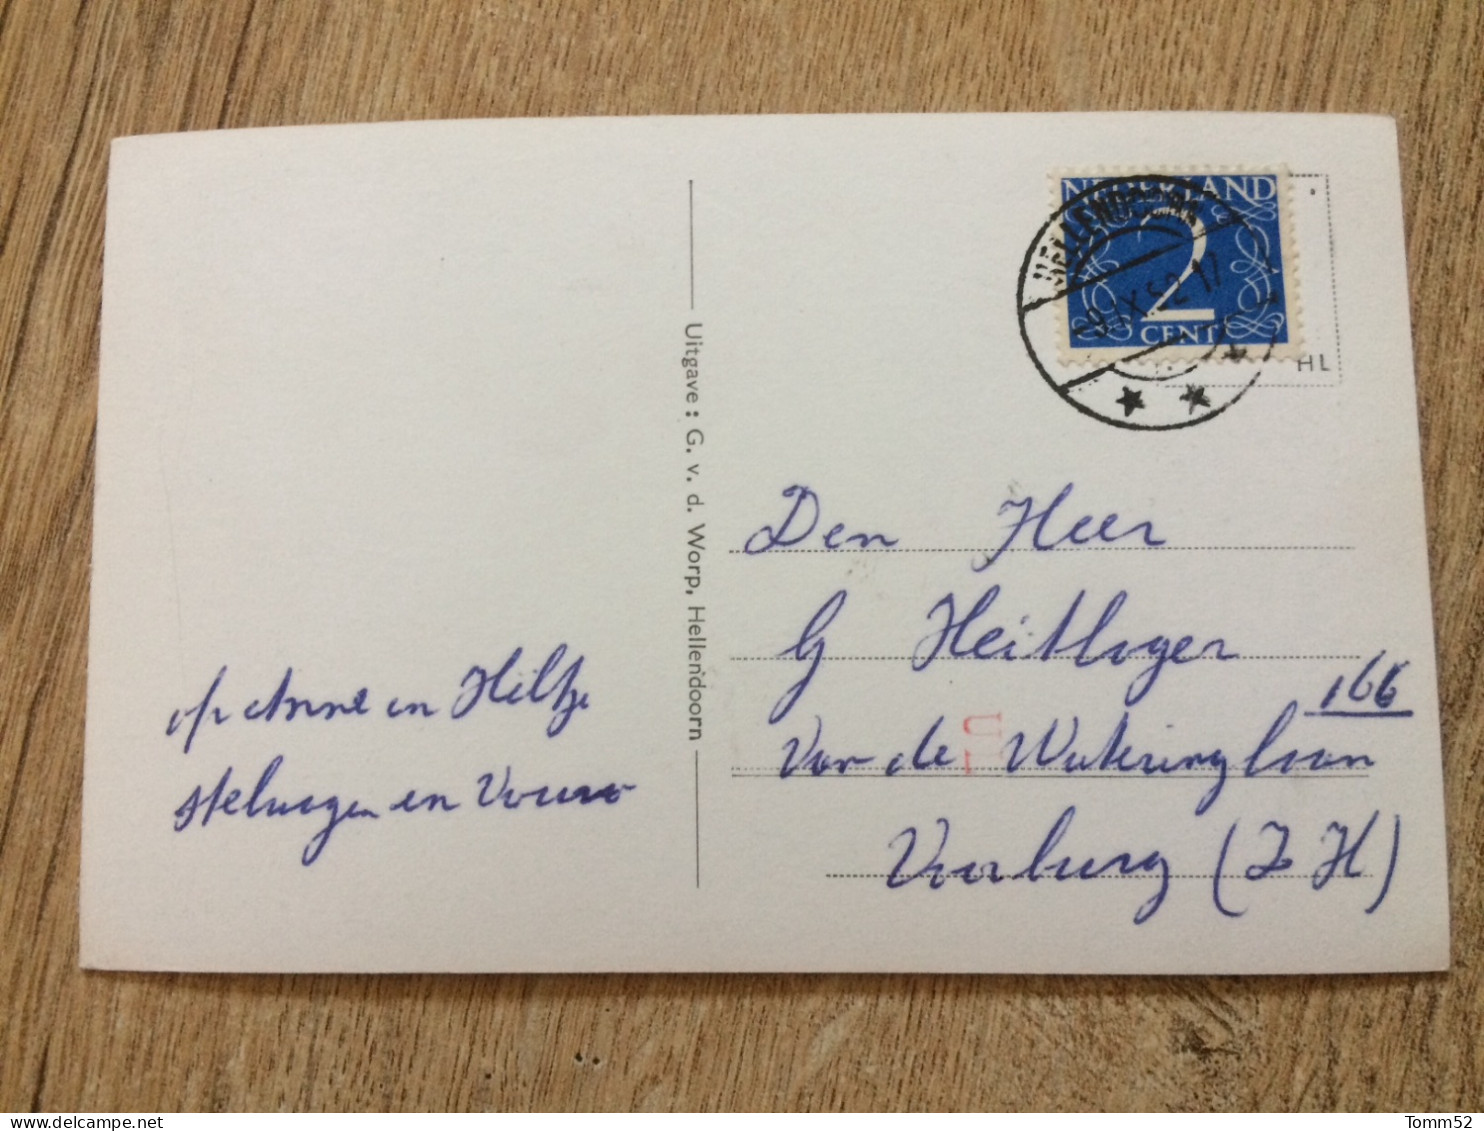 NEDERLAND
2
CENT
HELLENDOORN
-9.IX.52.17
HL
Uitgave: G. v. d. Worp, Hellendoorn
Den Heer
G Heitlager
166
Van de Wateringlaan
Voorburg (Z H)
Anne en Hiltje
en Vrouw
Tomm52